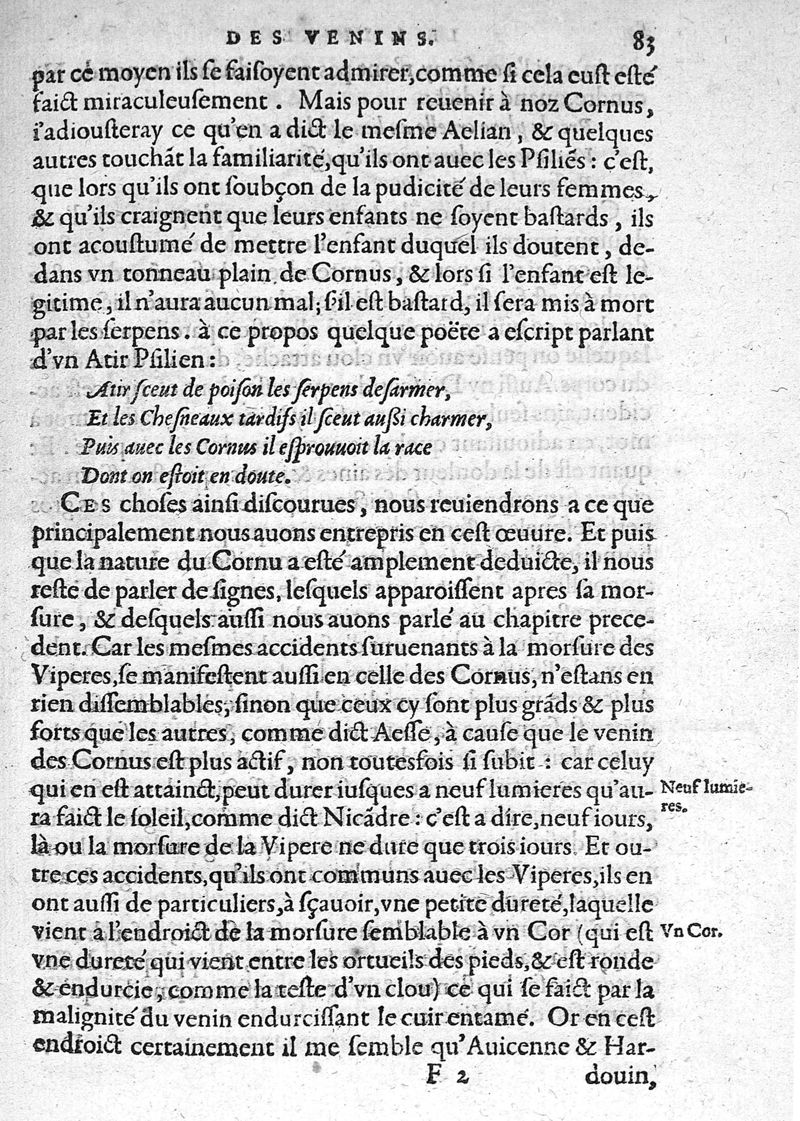 DES VENINS. 83
par ce moyen ils ſe faiſoyent admirer, comme ſi cela euſt eſté
faict miraculeuſement. Mais pour reuenir à noz Cornus,
i'adiouſteray ce qu'en a dict le meſme Aelian, & quelques
autres touchāt la familiarité, qu'ils ont auec les Pſiliēs : c'eſt,
que lors qu'ils ont ſoubçon de la pudicité de leurs femmes,
& qu'ils craignent que leurs enfants ne ſoyent baſtards, ils
ont acouſtumé de mettre l'enfant duquel ils doutent, de-
dans vn tonneau plain de Cornus, & lors ſi l'enfant eſt le-
gitime, il n'aura aucun mal; ſ'il eſt baſtard, il ſera mis à mort
par les ſerpens. à ce propos quelque poëte a eſcript parlant
d'vn Atir Pſilien :
Atir ſceut de poiſon les ſerpens deſarmer,
Et les Cheſneaux tardifs il ſceut außi charmer,
Puis auec les Cornus il eſprouuoit la race
Dont on eſtoit en doute.
CES choſes ainſi diſcourues, nous reuiendrons a ce que
principalement nous auons entrepris en ceſt œuure. Et puis
que la nature du Cornu a eſté amplement deduicte, il nous
reſte de parler de ſignes, leſquels apparoiſſent apres ſa mor-
ſure, & deſquels auſſi nous auons parlé au chapitre prece-
dent. Car les meſmes accidents ſuruenants à la morſure des
Viperes, ſe manifeſtent auſſi en celle des Cornus, n'eſtans en
rien diſſemblables, ſinon que ceux cy ſont plus grāds & plus
forts que les autres, comme dict Aeſſe, à cauſe que le venin
des Cornus eſt plus actif, non toutesfois ſi ſubit : car celuy
qui en eſt attainct, peut durer iuſques a neuf lumieres qu'au-
ra faict le ſoleil, comme dict Nicādre : c'eſt a dire, neuf iours,
là ou la morſure de la Vipere ne dure que trois iours. Et ou-
tre ces accidents, qu'ils ont communs auec les Viperes, ils en
ont auſſi de particuliers, à ſçauoir, vne petite dureté, laquelle
vient à l'endroict de la morſure ſemblable à vn Cor (qui eſt
vne dureté qui vient entre les ortueils des pieds, & eſt ronde
& endurcie, comme la teſte d'vn clou) ce qui ſe faict par la
malignité du venin endurciſſant le cuir entamé. Or en ceſt
endroict certainement il me ſemble qu'Auicenne & Har-
F 2 douin,
Neuf lumie-
res.
Vn Cor.